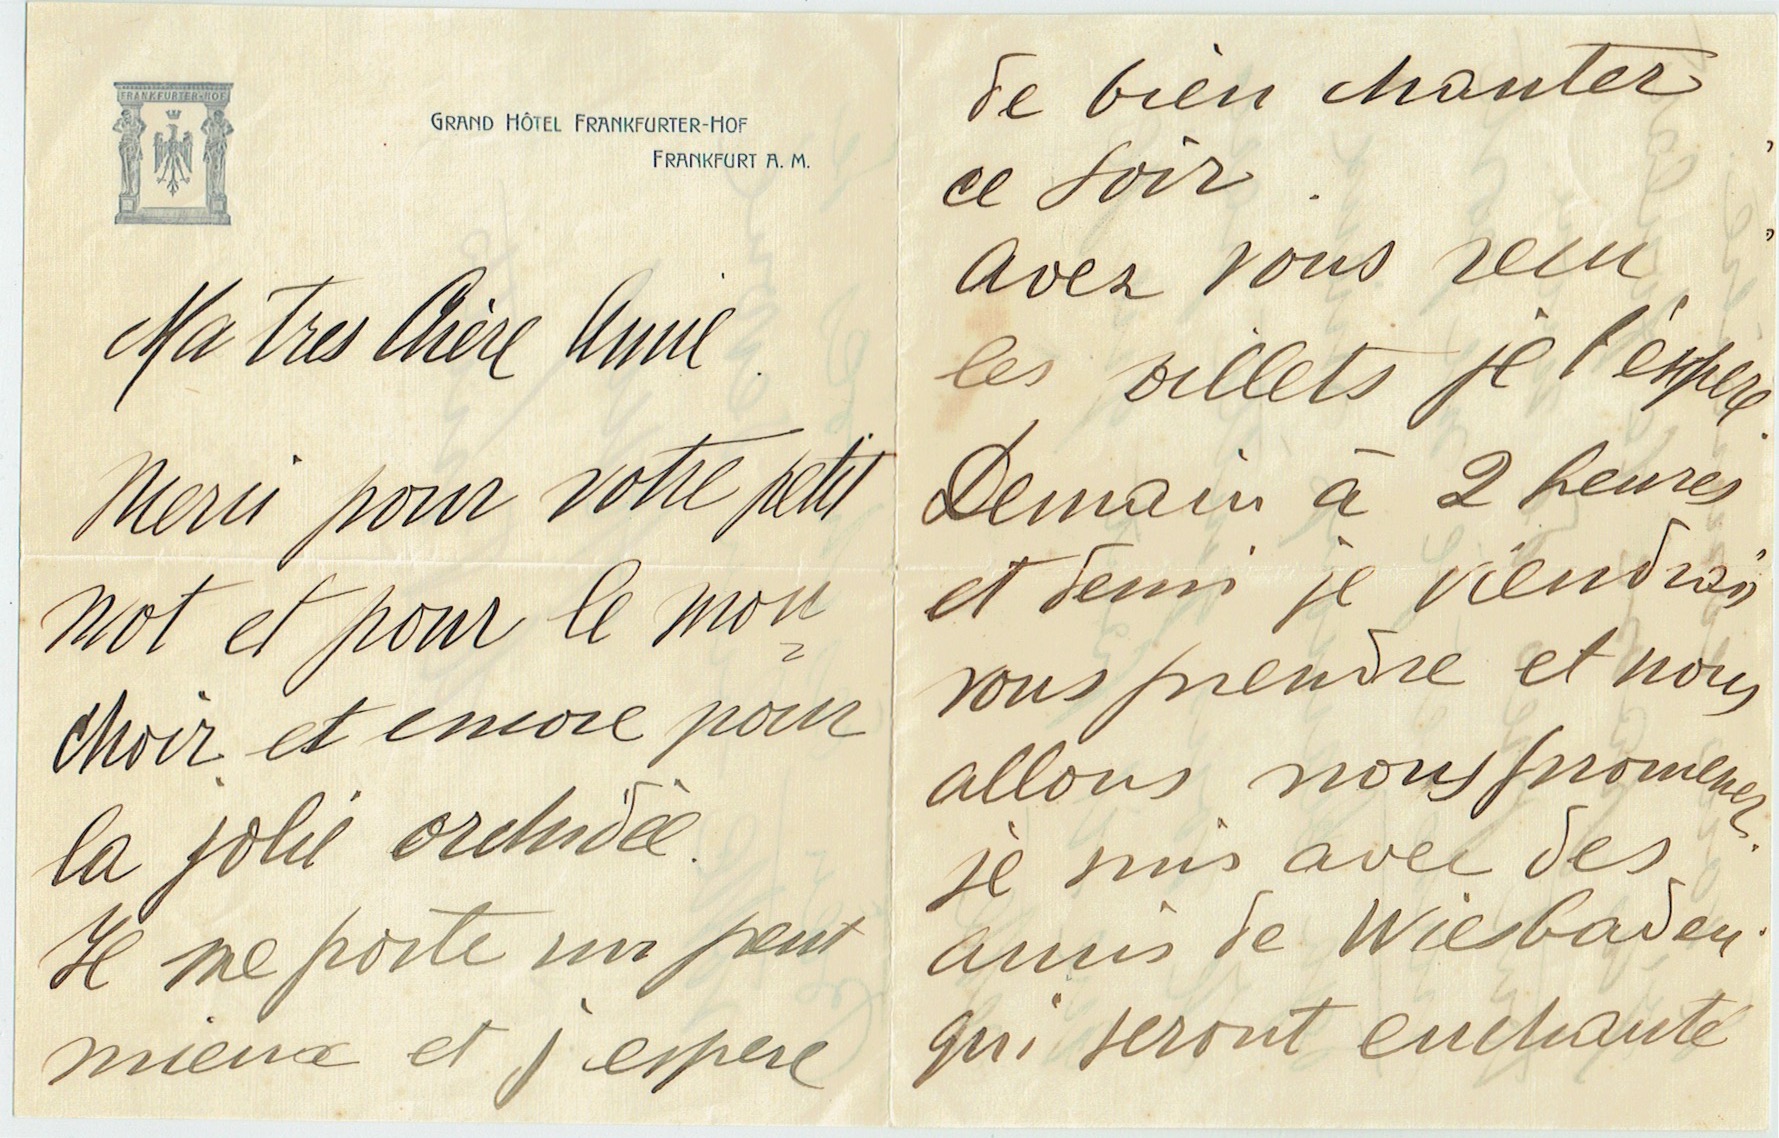 FRANKFURTER-HOF
GRAND HÔTEL FRANKFURTER-HOF
FRANKFURT A. M.
Ma tres Chère Annie.
Merci pour votre petit
mot et pour le mou
choir et encore pour
la jolie orchidée.
Je me porte un peut
mieux et j espere
de bien chanter
ce soir.
Avez vous recu
les billets je l'éspere.
Demain à 2 heures
et demi je viendrais
vous prendre et nous
allons nous promener.
je suis avec des
amis de Wiesbaden.
qui seront enchanté